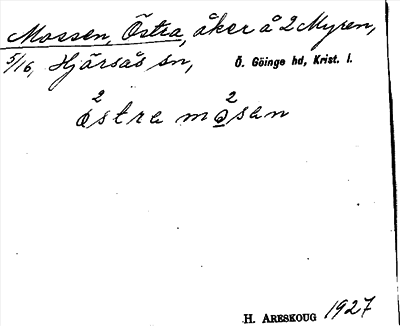 Mossen, Östra, åker å 2 Myren,
5/16, Hjärsås sn, Ö. Göinge hd, Krist. l.
2 2
östra mo̲san
H. ARESKOUG 1927